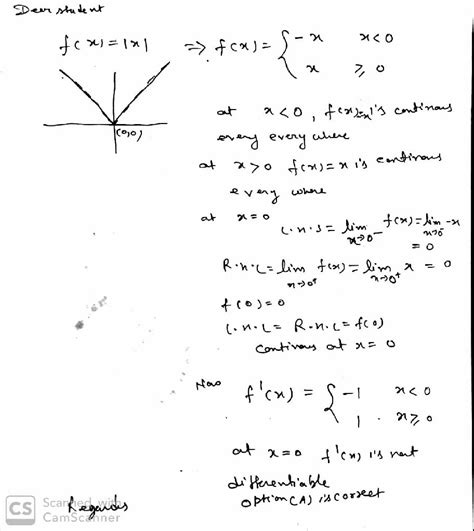 Dear student
f(x) = |x| ⇒ f(x) = { -x x<0
x ≥ 0
(0,0)
at x<0, f(x)=-x is continous
every every where
at x>0 f(x)=x is continous
every where
at x=0
L.H.S = lim x→0⁻ f(x) = lim x→0⁻ -x
= 0
R.H.L = lim x→0⁺ f(x) = lim x→0⁺ x = 0
f(0) = 0
L.H.L = R.H.L = f(0)
continous at x=0
Now f'(x) = { -1 x<0
1 . x≥0
at x=0 f'(x) is not
differentiable
option (A) is correct
Regards
CS Scanned with
CamScanner